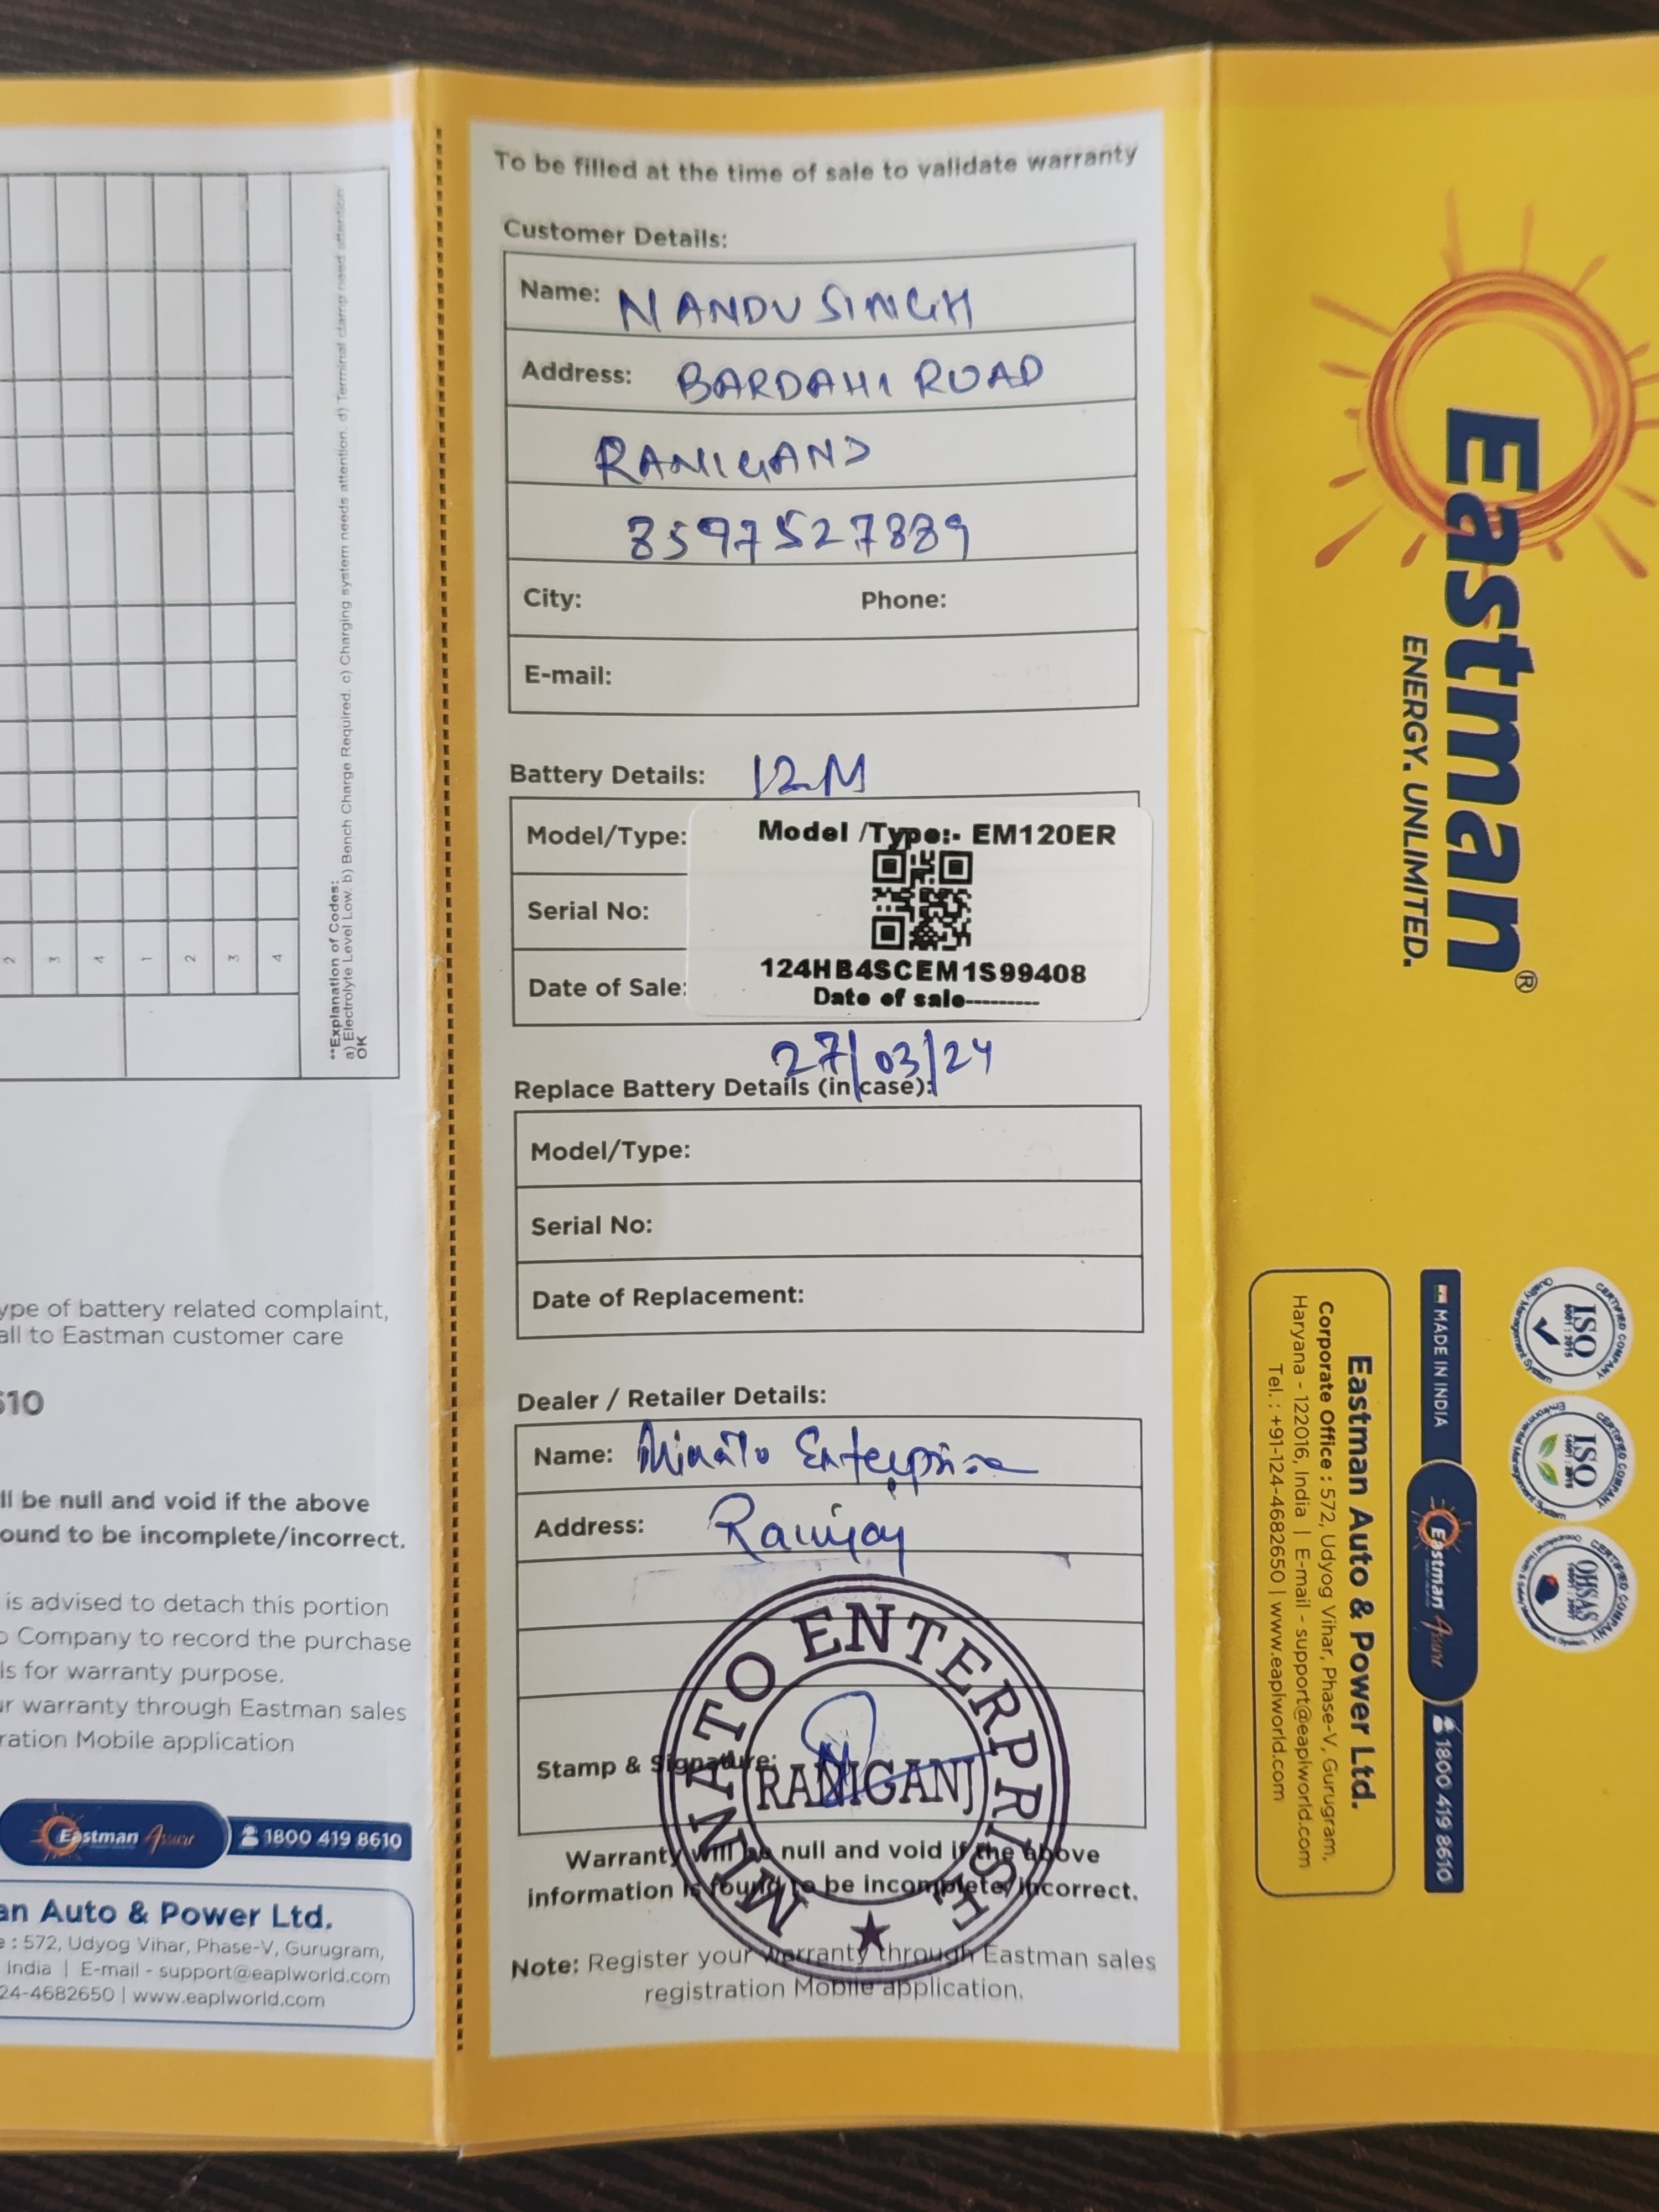 2
3
4
1
2
3
4
**Explanation of Codes:
a) Electrolyte Level Low. b) Bench Charge Required. c) Charging system needs attention. d) Terminal clamp need attention
OK
ype of battery related complaint,
all to Eastman customer care
610
ll be null and void if the above
ound to be incomplete/incorrect.
is advised to detach this portion
o Company to record the purchase
ls for warranty purpose.
ur warranty through Eastman sales
ration Mobile application
Eastman Assure 1800 419 8610
an Auto & Power Ltd.
e : 572, Udyog Vihar, Phase-V, Gurugram,
India | E-mail - support@eaplworld.com
24-4682650 | www.eaplworld.com
To be filled at the time of sale to validate warranty
Customer Details:
Name: NANDU SINGH
Address: BARDAHI ROAD
RANIGANJ
8597527889
City: Phone:
E-mail:
Battery Details: 12M
Model/Type: Model /Type:- EM120ER
Serial No:
124HB4SCEM1S99408
Date of Sale: Date of sale---------
27/03/24
Replace Battery Details (in case):
Model/Type:
Serial No:
Date of Replacement:
Dealer / Retailer Details:
Name: Minato Enterprise
Address: Raniganj
MINATO ENTERPRISE
RANIGANJ
Stamp & Signature:
Warranty will be null and void if the above
information is found to be incomplete/incorrect.
Note: Register your warranty through Eastman sales
registration Mobile application.
Eastman®
ENERGY. UNLIMITED.
CERTIFIED COMPANY
ISO
9001 : 2015
Quality Management System
CERTIFIED COMPANY
ISO
14001 : 2015
Environmental Management System
CERTIFIED COMPANY
OHSAS
18001 : 2007
MADE IN INDIA
Eastman Assure
1800 419 8610
Eastman Auto & Power Ltd.
Corporate Office : 572, Udyog Vihar, Phase-V, Gurugram,
Haryana - 122016, India | E-mail - support@eaplworld.com
Tel. : +91-124-4682650 | www.eaplworld.com